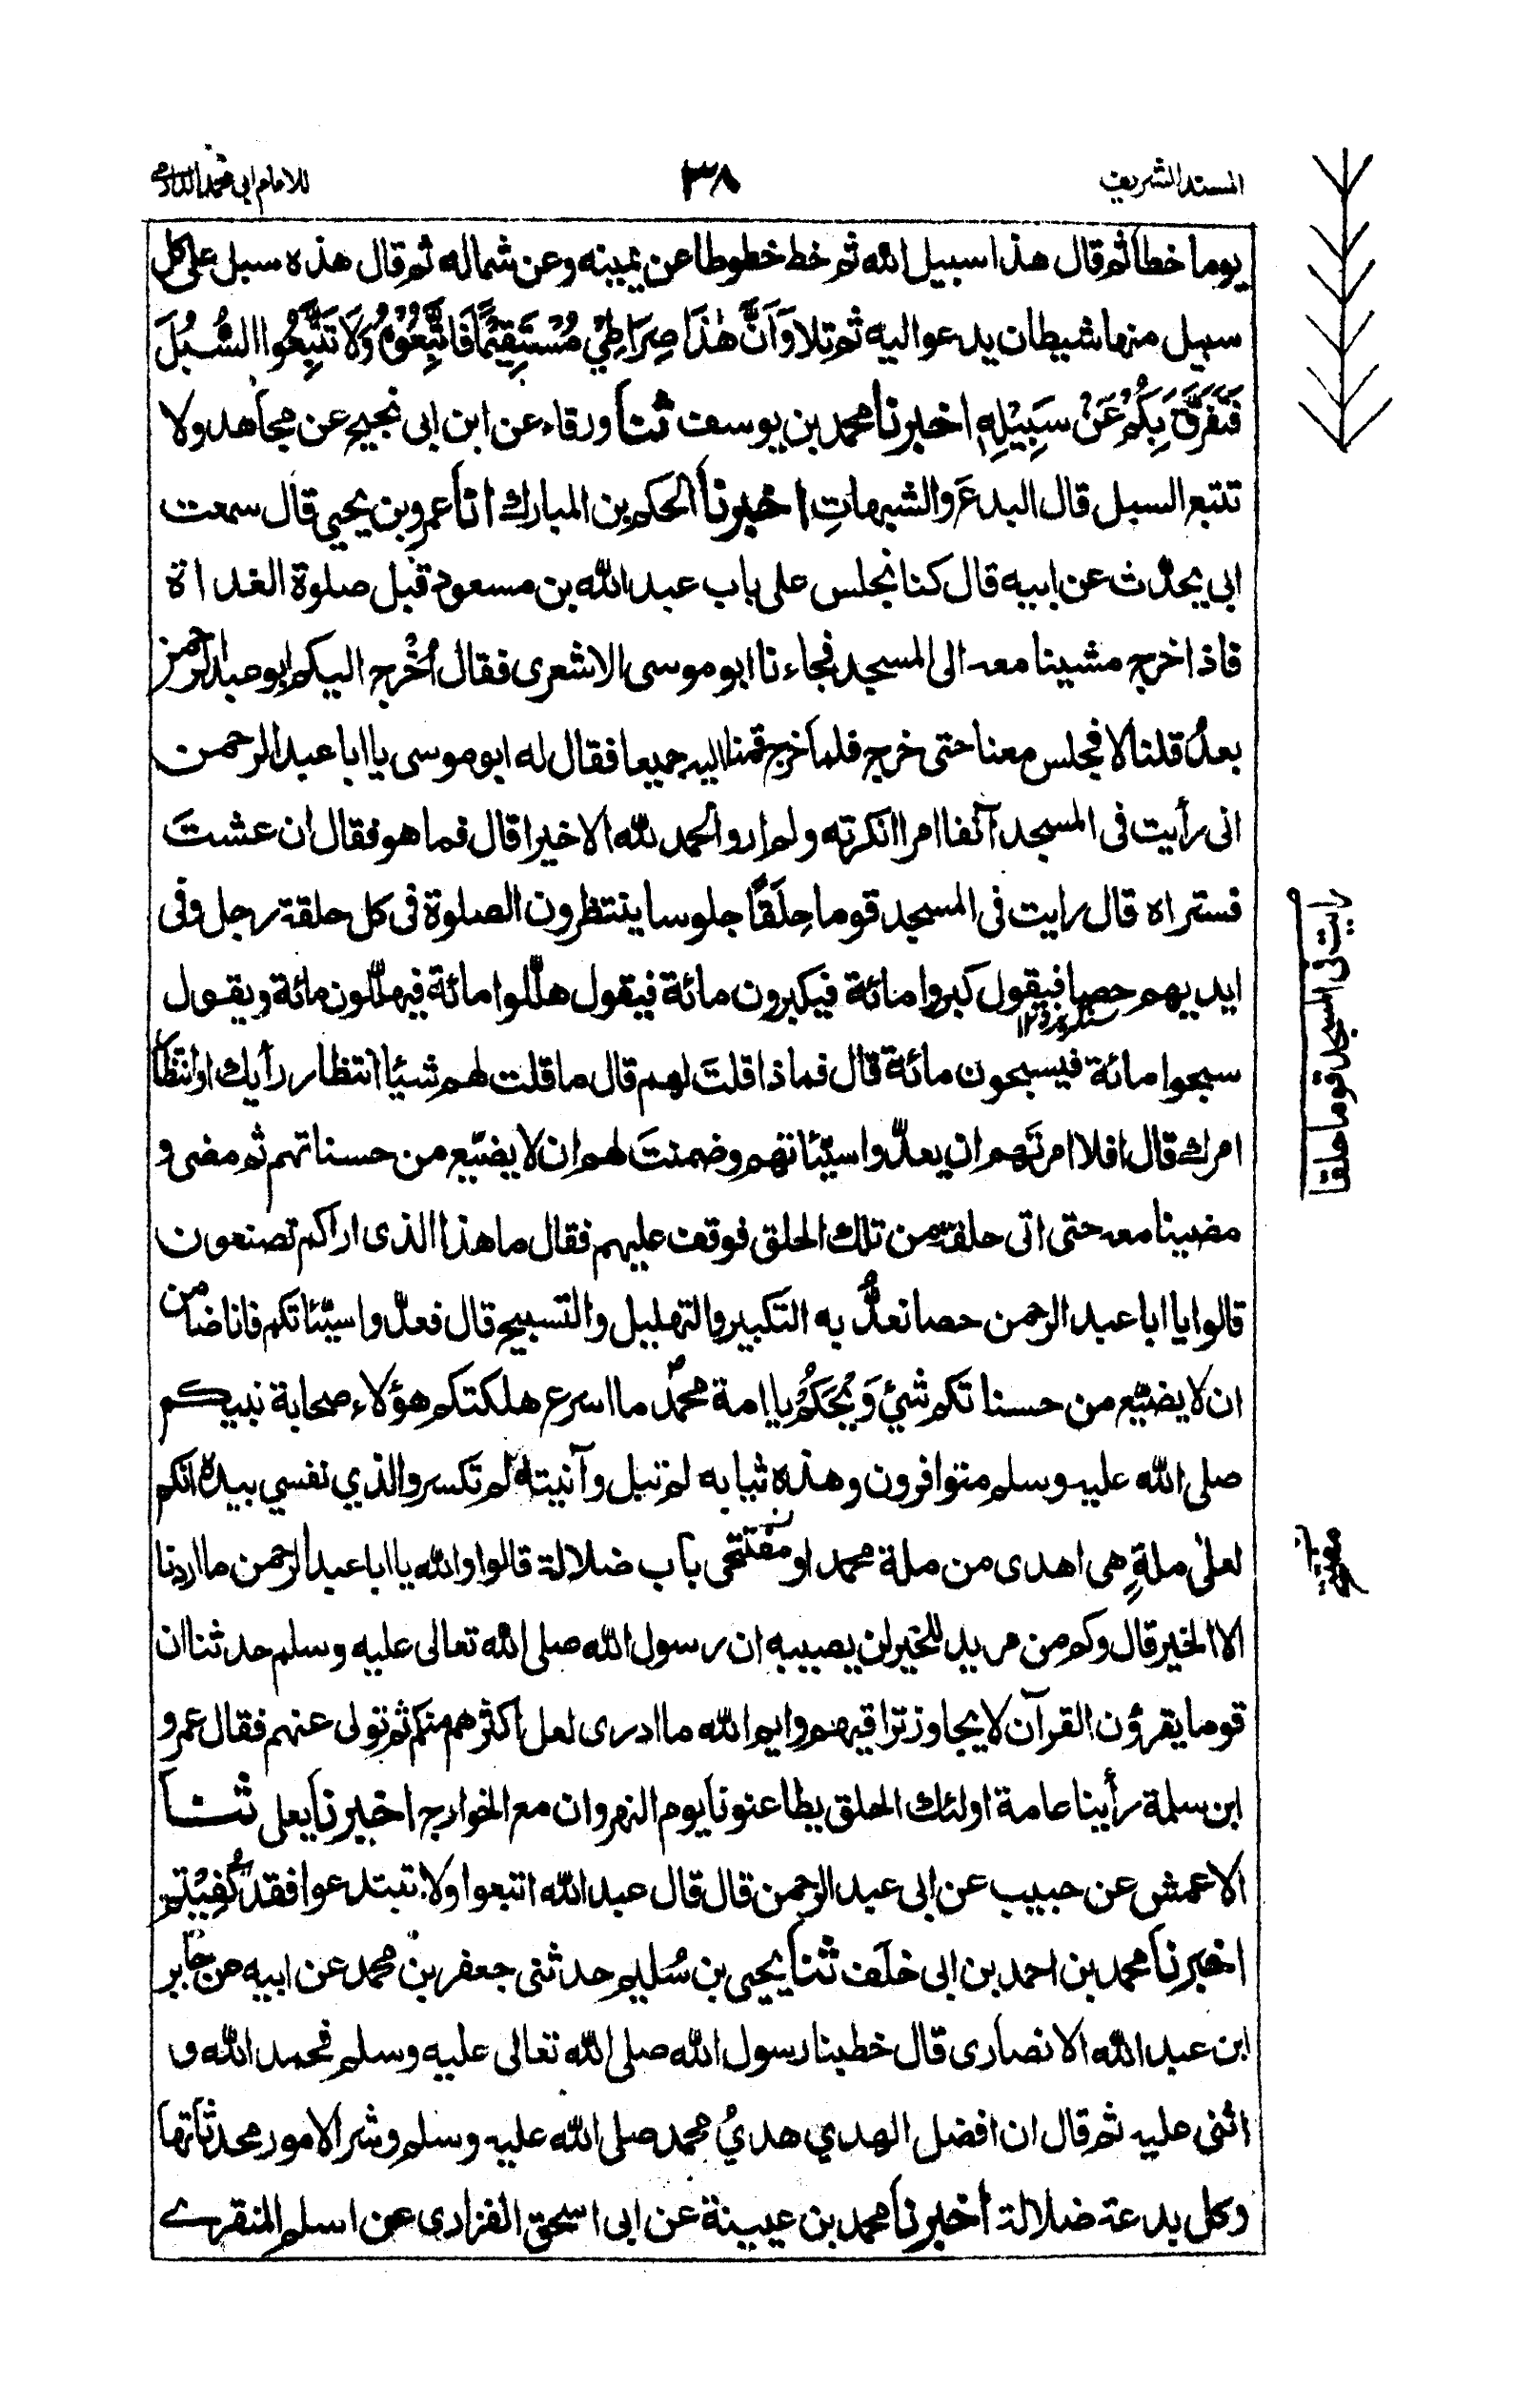 المسند الشريف
٣٨
للامام ابي محمد الدارمي
يوما خطا ثم قال هذا سبيل الله ثم خط خطوطا عن يمينه وعن شماله ثم قال هذه سبل على كل
سبيل منها شيطان يدعو اليه ثم تلا وَاَنَّ هٰذَا صِرَاطِيْ مُسْتَقِيْمًا فَاتَّبِعُوْهُ وَلَا تَتَّبِعُوا السُّبُلَ
فَتَفَرَّقَ بِكُمْ عَنْ سَبِيْلِهِ اخبرنا محمد بن يوسف ثنا ورقاء عن ابن ابى نجيح عن مجاهد ولا
تتبع السبل قال البدعَ والشبهاتِ اخبرنا الحكم بن المبارك انا عمرو بن يحيي قال سمعت
ابي يحدّث عن ابيه قال كنا نجلس على باب عبد الله بن مسعود قبل صلوة الغداة
فاذا خرج مشينا معه الى المسجد فجاءنا ابو موسى الاشعرى فقال أخْرج اليكم ابو عبد الرحمن
بعدُ قلنا لا فجلس معنا حتى خرج فلما خرج قمنا اليه جميعا فقال له ابو موسى يا ابا عبد الرحمن
انى رأيت فى المسجد آنفا امرا انكرته ولم ار والحمد لله الا خيرا قال فما هو فقال ان عشتَ
فستراه قال رايت فى المسجد قوما حِلَقًا جلوسا ينتظرون الصلوة فى كل حلقة رجل وفى
ايديهم حصا فيقول كبروا مائة فيكبرون مائة فيقول هلّلوا مائة فيهلّلون مائة ويقول
سبحوا مائة فيسبحون مائة قال فماذا قلتَ لهم قال ما قلت لهم شيئا انتظار رأيك او انتظار
امرك قال افلا امرتَهم ان يعدّوا سيّئاتهم وضمنتَ لهم ان لا يضيّع من حسناتهم ثم مضى و
مضينا معه حتى اتى حلقة من تلك الحلق فوقف عليهم فقال ما هذا الذى اراكم تصنعون
قالوا يا ابا عبد الرحمن حصا نعدُّ به التكبير والتهليل والتسبيح قال فعدّوا سيّئاتكم فانا ضامن
ان لا يضيّع من حسناتكم شيئ وَيْحَكُمْ يا امة محمدؐ ما اسرع هلكتكم هؤلاء صحابة نبيكم
صلى الله عليه وسلم متوافرون وهذه ثيابه لم تبل وآنيته لم تكسر والذي نفسي بيده انكم
لعلى ملةٍ هى اهدى من ملة محمد او مفتتحى باب ضلالة قالوا والله يا ابا عبد الرحمن ما اردنا
الا الخير قال وكم من مريد للخير لن يصيبه ان رسول الله صلى الله تعالى عليه وسلم حدثنا ان
قوما يقرؤن القرآن لا يجاوز تراقيهم وايم الله ما ادرى لعل اكثرهم منكم ثم تولى عنهم فقال عمرو
ابن سلمة رأينا عامة اولئك الحلق يطاعنونا يوم النهروان مع الخوارج اخبرنا يعلى ثنا
الاعمش عن حبيب عن ابى عبد الرحمن قال قال عبد الله اتبعوا ولا تبتدعوا فقد كُفِيْتم
اخبرنا محمد بن احمد بن ابى خلف ثنا يحيى بن سُليم حدثنى جعفر بن محمد عن ابيه عن جابر
ابن عبد الله الانصارى قال خطبنا رسول الله صلى الله تعالى عليه وسلم فحمد الله و
اثنى عليه ثم قال ان افضل الهدي هديُ محمد صلى الله عليه وسلم وشر الامور محدثاتها
وكل بدعة ضلالة اخبرنا محمد بن عيينة عن ابى اسحق الفزارى عن اسلم المنقرے
رايت فى المسجد قوما حلقا